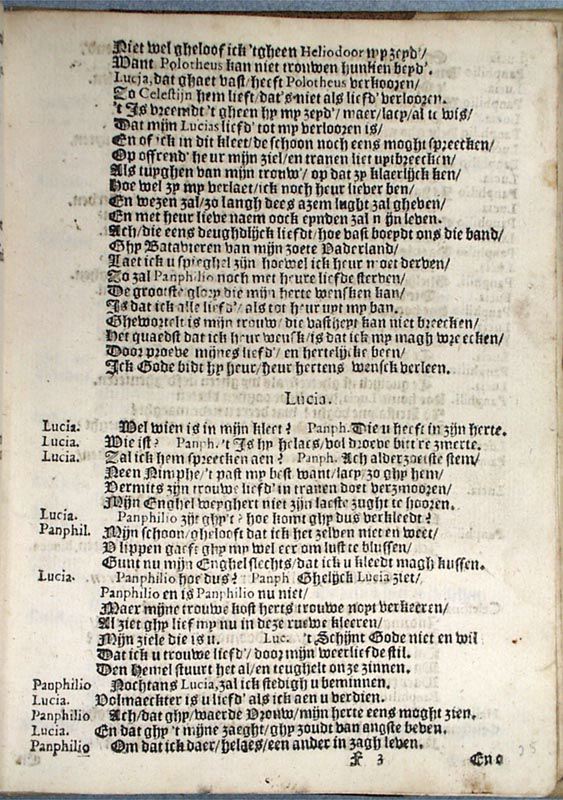 Niet wel gheloof ick 'tgheen Heliodoor wy zeyd/
Want Polotheus kan niet trouwen hunken beyd'.
Lucia, dat ghaet vast/ heeft Polotheus verkooren/
Zo Celestijn hem lieft/ dat's niet als liefd' verlooren.
't Is vreemdt 't gheen hy my zeyd'/ maer/ lacy/ al te wis/
Dat mijn Lucias liefd' tot my verlooren is/
En of ick in dit kleet/ de schoon noch eens moght spreecken/
Op offrend' heur mijn ziel/ en tranen liet uytbreecken/
Als tuyghen van mijn trouw'/ op dat zy klaerlijck ken/
Hoe wel zy my verlaet/ ick noch heur liever ben/
En wezen zal/ zo langh dees azem lught zal gheven/
En met heur lieve naem oock eynden zal mijn leven.
Ach/ die eens deughdlijck liefd/ hoe vast boeydt ons die band/
Ghy Batavieren van mijn zoete Vaderland/
Laet ick u spieghel zijn hoewel ick heur moet derven/
Zo zal Panphilio noch met heure liefde sterven/
De grootste glory die mijn herte wensken kan/
Is dat ick alle liefd'/ als tot heur uyt my ban.
Ghewortelt is mijn trouw/ die vastheyt kan niet breecken/
Het quaedst dat ick heur wensk/ is dat ick my magh wreecken/
Door proeve mijnes liefd'/ en hertelijcke been/
Ick Gode bidt hy heur/ heur hertens wensck verleen.
Lucia.
Lucia. Wel wien is in mijn kleet? Panph. Die u heeft in zijn herte.
Lucia. Wie ist? Panph. 't Is hy helaes/ vol droeve bittre zmerte.
Lucia. Zal ick hem spreecken aen? Panph. Ach alderzoetste stem/
Neen Nimphe/ 't past my best want/ lacy/ zo ghy hem/
Vermits zijn trouwe liefd' in tranen doet verzmooren/
Mijn Enghel weyghert niet zijn laetste zught te hooren.
Lucia. Panphilio zijt ghy't? hoe komt ghy dus verkleedt?
Panphil. Mijn schoon/ ghelooft dat ick het zelven niet en weet/
V lippen gaeft ghy my wel eer om lust te blussen/
Gunt nu mijn Enghel slechts/ dat ick u kleedt magh kussen.
Lucia. Panphilio hoe dus? Panph. Ghelijck Lucia ziet/
Panphilio en is Panphilio nu niet/
Maer mijne trouwe kost herts trouwe noyt verkeeren/
Al ziet ghy lief my nu in deze ruewe kleeren/
Mijn ziele die is u. Luc. 't Schijnt Gode niet en wil
Dat ick u trouwe liefd'/ door mijn weerliefde stil.
Den Hemel stuurt het al/ en teughelt onze zinnen.
Panphilio Nochtans Lucia, zal ick stedigh u beminnen.
Lucia. Volmaeckter is u liefd' als ick aen u verdien.
Panphilio Ach/ dat ghy/ waerde Vrouw/ mijn herte eens moght zien.
Lucia. En dat ghy 't mijne zaeght/ ghy zoudt van angste beven.
Panphilio Om dat ick daer/ helaes/ een ander in zagh leven.
F 3 En o